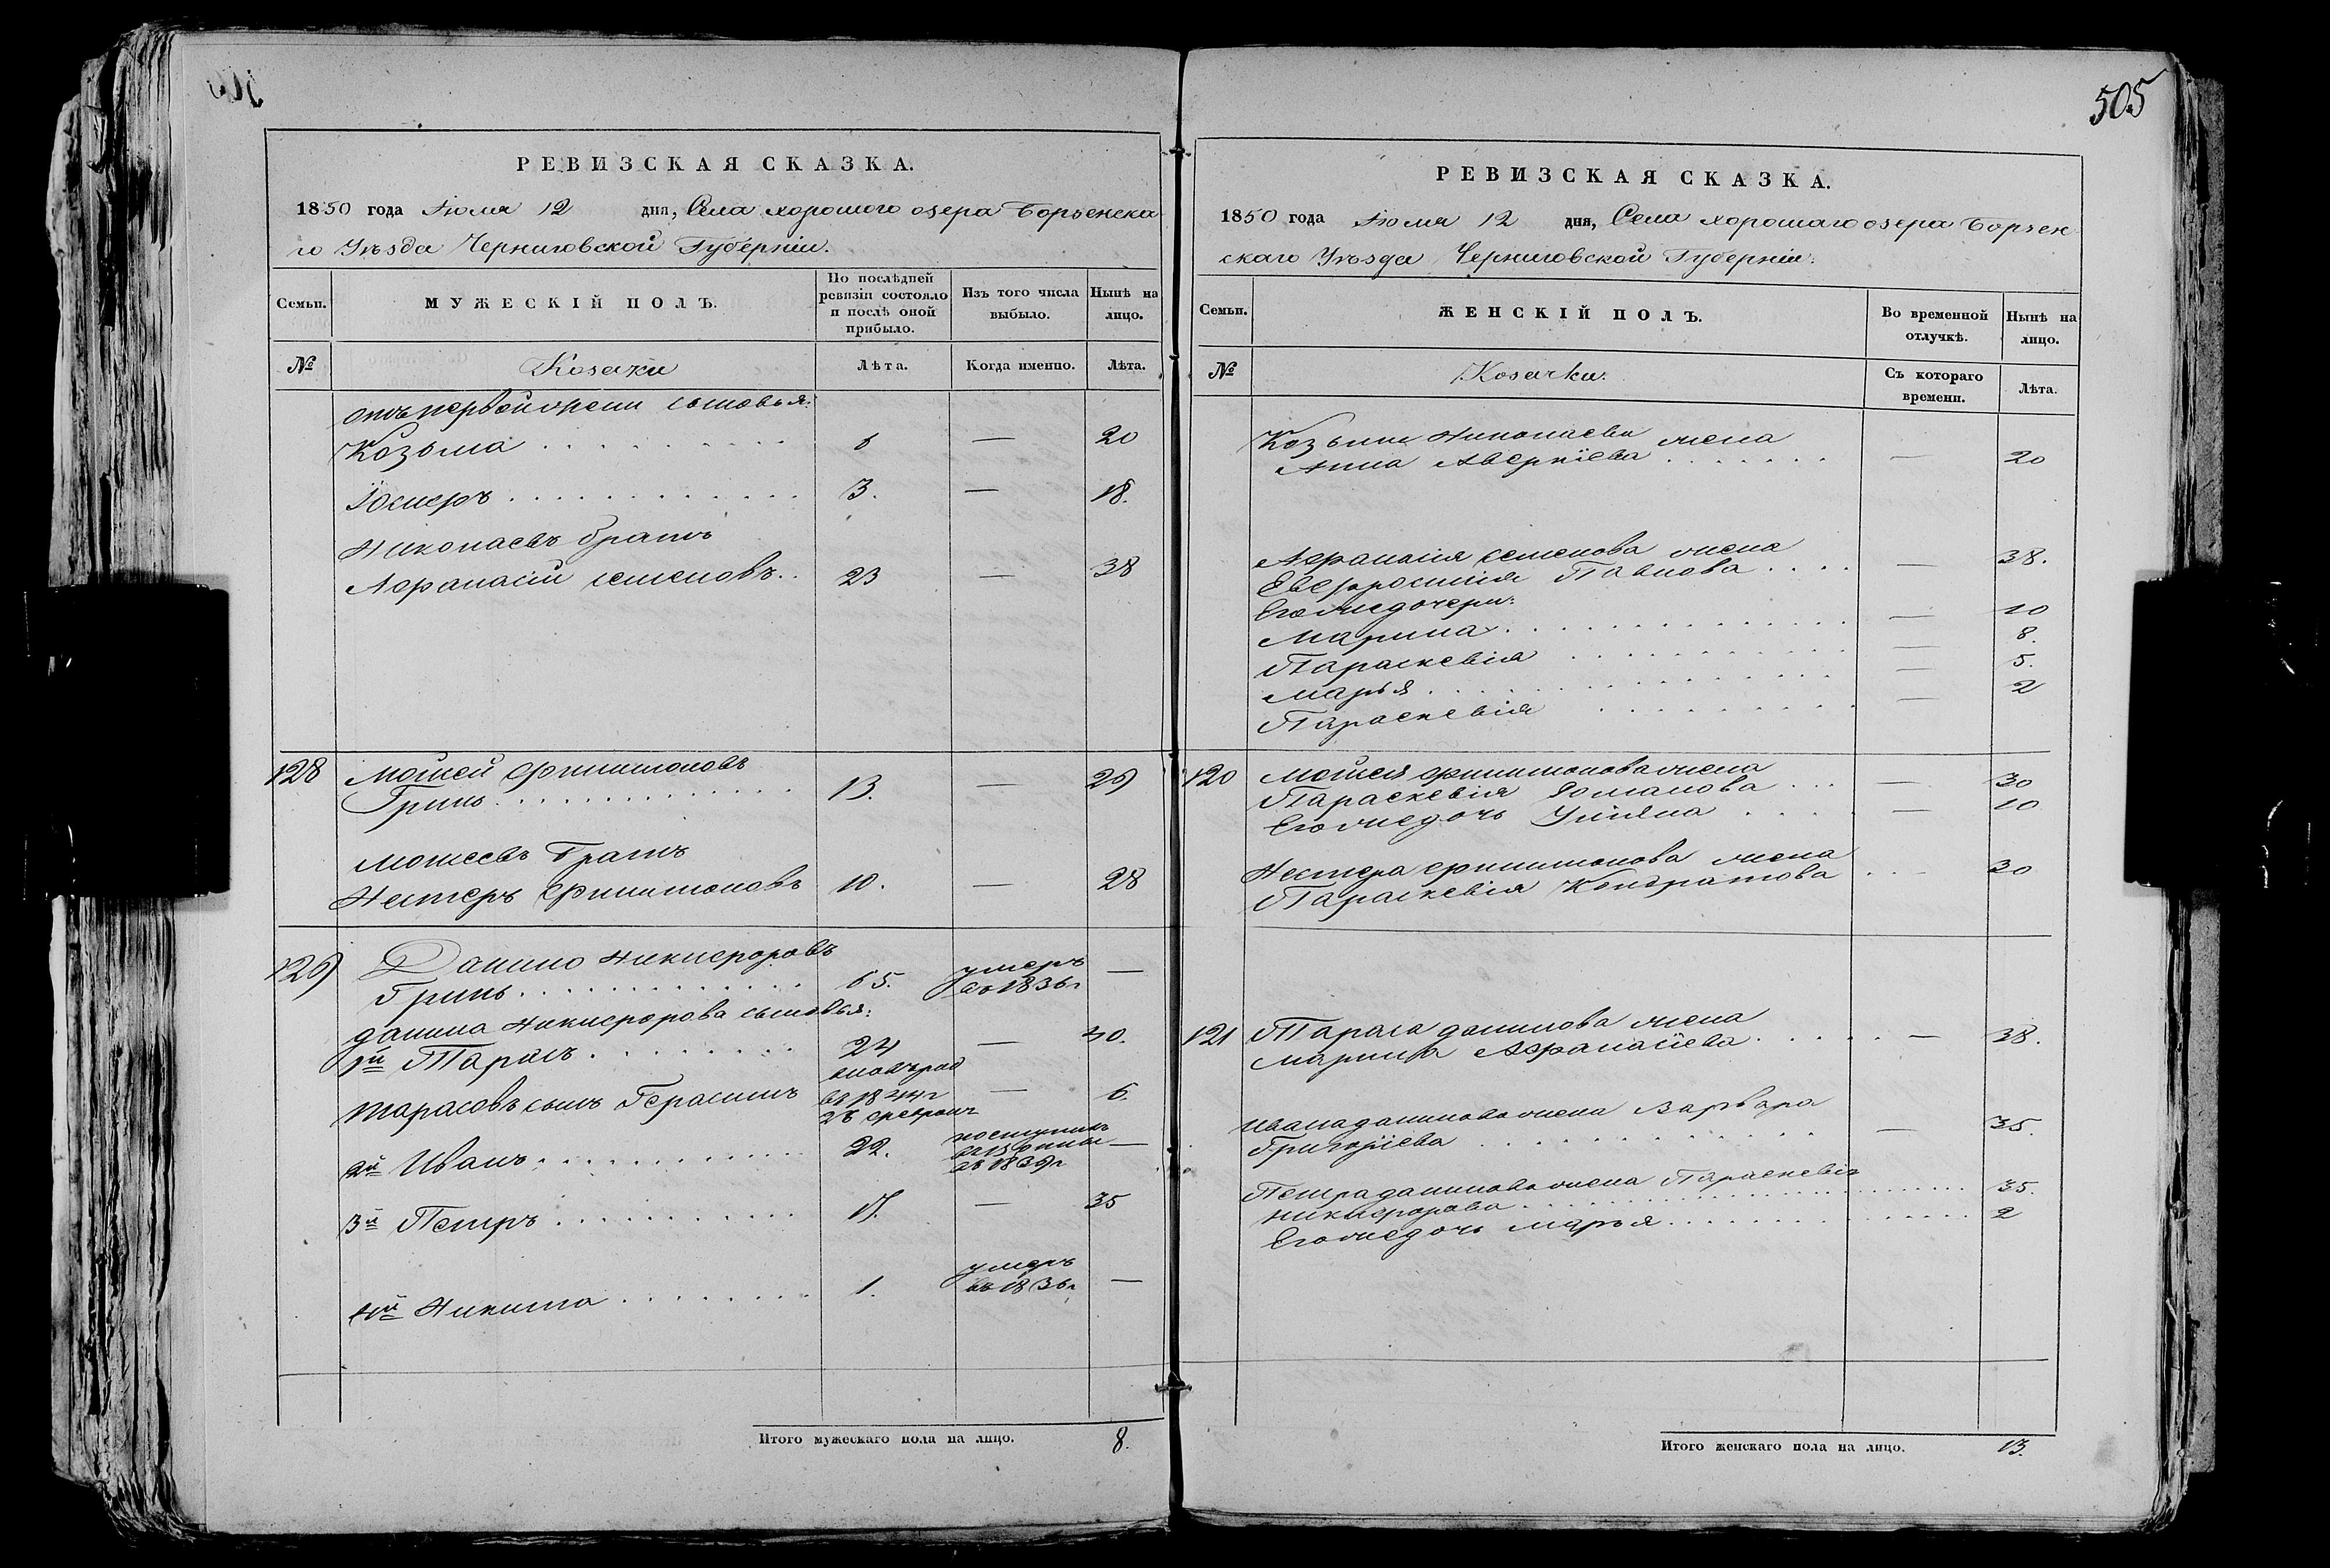 505
РЕВИЗСКАЯ СКАЗКА.
1850 года Июля 12 дня, Села хорошого озера Борзенска
го Уѣзда Черниговской Губерніи.
Семьи.
МУЖЕСКІЙ ПОЛЪ.
По послѣдней ревизіи состояло и послѣ оной прибыло.
Изъ того числа выбыло.
Нынѣ на лицо.
№
Козаки
Лѣта.
Когда именно.
Лѣта.
отъ первой жени сыновья:
Козьма . . . . 6 — 20
3. — 18.
Николаевъ братъ
Афранасій семеновъ . . 23 — 38
128 Мойсей филимоновъ
Гринь . . . . 13. — 29
Мойсеевъ братъ
Нестеръ филимоновъ 10. — 28
129 Данило Никифоровъ
Гринь . . . . 65. умеръ въ 1836г —
Данила Никифорова сыновья:
1й Тарасъ . . . . 24 — 40.
Тарасовъ сынъ Герасимъ
въ 1844г — 6.
2й Иванъ . . . . 22. въ 1839г —
3й Петръ . . . . 17. — 35
4й Никита . . . . 1. умеръ въ 1836г —
Итого мужескаго пола на лицо. 8.
РЕВИЗСКАЯ СКАЗКА.
1850 года Июля 12 дня, Села хорошаго озера Борзен
скаго Уѣзда Черниговской Губерніи.
Семьи.
ЖЕНСКІЙ ПОЛЪ.
Во временной отлучкѣ.
Нынѣ на лицо.
№
Козачки.
Съ котораго времени.
Лѣта.
Козьмы Николаева жена
Анна Аверкіева . . . . — 20
Афранасія семенова жена
Евфросинія Павлова . . . . — 38.
Егожедочери:
Марина . . . . — 10
Параскевія . . . . — 8.
Марья . . . . — 5.
Параскевія . . . . — 2
120 Мойсея филимонова жена
Параскевія Романова . . . — 30
Егожедочь Уліяна . . . . — 10
Нестера филимонова жена
Параскевія Кондратова . . . 30
121 Тараса данилова жена
Марина Афранасіева . . . . — 38.
Иванаданилова жена Варвара
Григоріева . . . . — 35.
Петраданилова жена Параскевія
Никифорова . . . . 35.
Егожедочь Марья . . . . 2
Итого женскаго пола на лицо. 13.